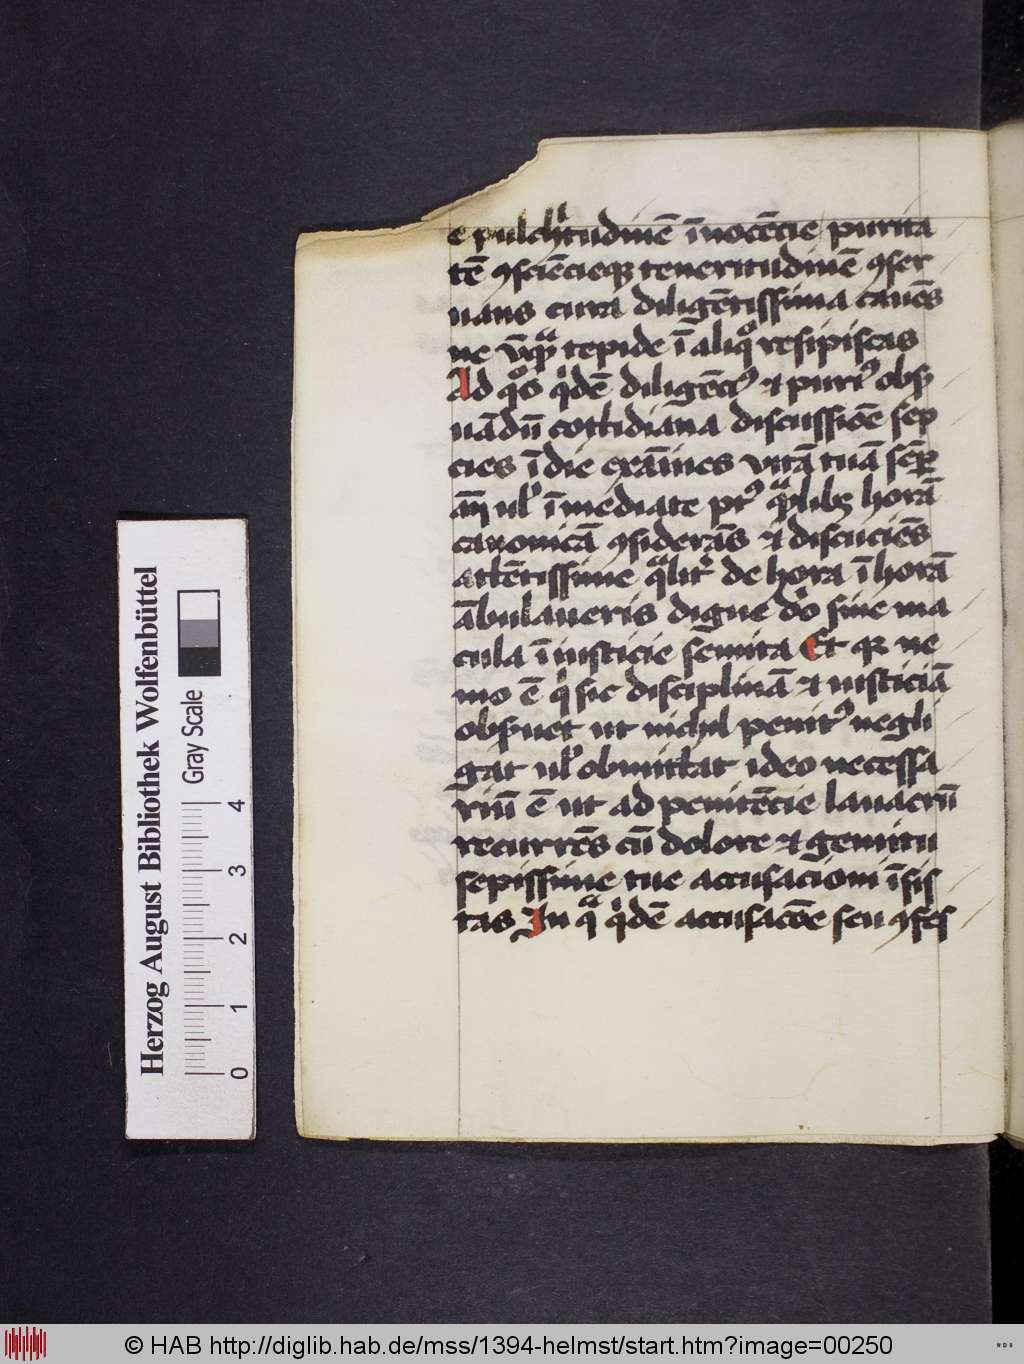 e pulchͥtudinē īnocēcie purita
tē ꝯsciēcieqꝫ teneritudinē ꝯser
uans cura diligētissima cauēs
ne vn̄qᷓ tepide ī aliqͦ resipiscas
Ad qͦs qͥdē diligēciꝰ ⁊ puriꝰ obẜ
uādū cottidiana discussiōe sep
cies ī die exāines vitā tuā sēꝑ
an̄ ul̕ īmediate pꝰ qᷓlibꝫ horā
canonicā ꝯsiderās ⁊ discuciēs
attētissime qᷓlit̕ de hora ī horā
ābulaueris digne dō sine ma
cula ī iusticie semita Et qꝛ ne
mo ē qͥ sic disciplinā ⁊ iusticiā
obẜuet ut nichil penitꝰ negli
gat ul̕ obmittat ideo necessa
riū ē ut ad penitēcie lauacrū
recurrēs cū dolore ⁊ gemitu
sepissime tue accusacioni īsis
tas In qᷓ qͥdē accusacōe seu ꝯfes
Herzog August Bibliothek Wolfenbüttel
Gray Scale
0 1 2 3 4
© HAB http://diglib.hab.de/mss/1394-helmst/start.htm?image=00250